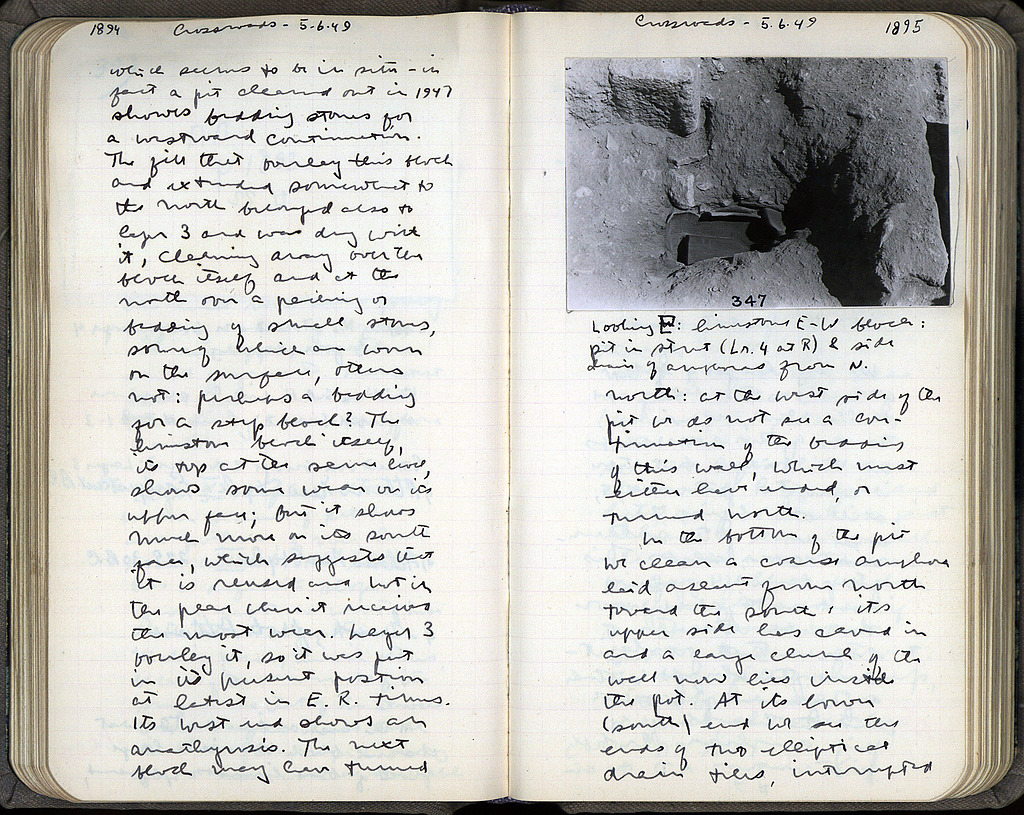 1894 Crossroads - 5.6.49
which seems to be in situ - in
fact a pit cleared out in 1947
shows bedding stones for
a westward continuation.
The fill that overlay this block
and extended somewhat to
the north belonged also to
layer 3 and was dug with
it, cleaning away over the
block itself and at the
north over a packing or
bedding of small stones,
some of which are worn
on the surface, others
not: perhaps a bedding
for a step block? The
limestone block itself,
its top at the same level,
shows some wear on its
upper face; but it shows
much more on its south
face, which suggests that
it is reused and not in
the place where it received
the most wear. Layer 3
overlay it, so it was put
in its present position
at latest in E. R. times.
Its west end shows an
anathyrosis. The next
block may have turned
Crossroads - 5.6.49 1895
347
Looking E: limestone E-W block:
pit in street (Lr. 4 at R) & side
drain of amphoras from N.
north: at the west side of the
pit we do not see a con-
tinuation of the bedding
of this wall, which must
either have ended, or
turned north.
In the bottom of the pit
we clean a coarse amphora
laid aslant from north
toward the south; its
upper side has caved in
and a large chunk of the
wall now lies inside
the pot. At its lower
(south) end we see the
ends of two elliptical
drain tiles, interrupted